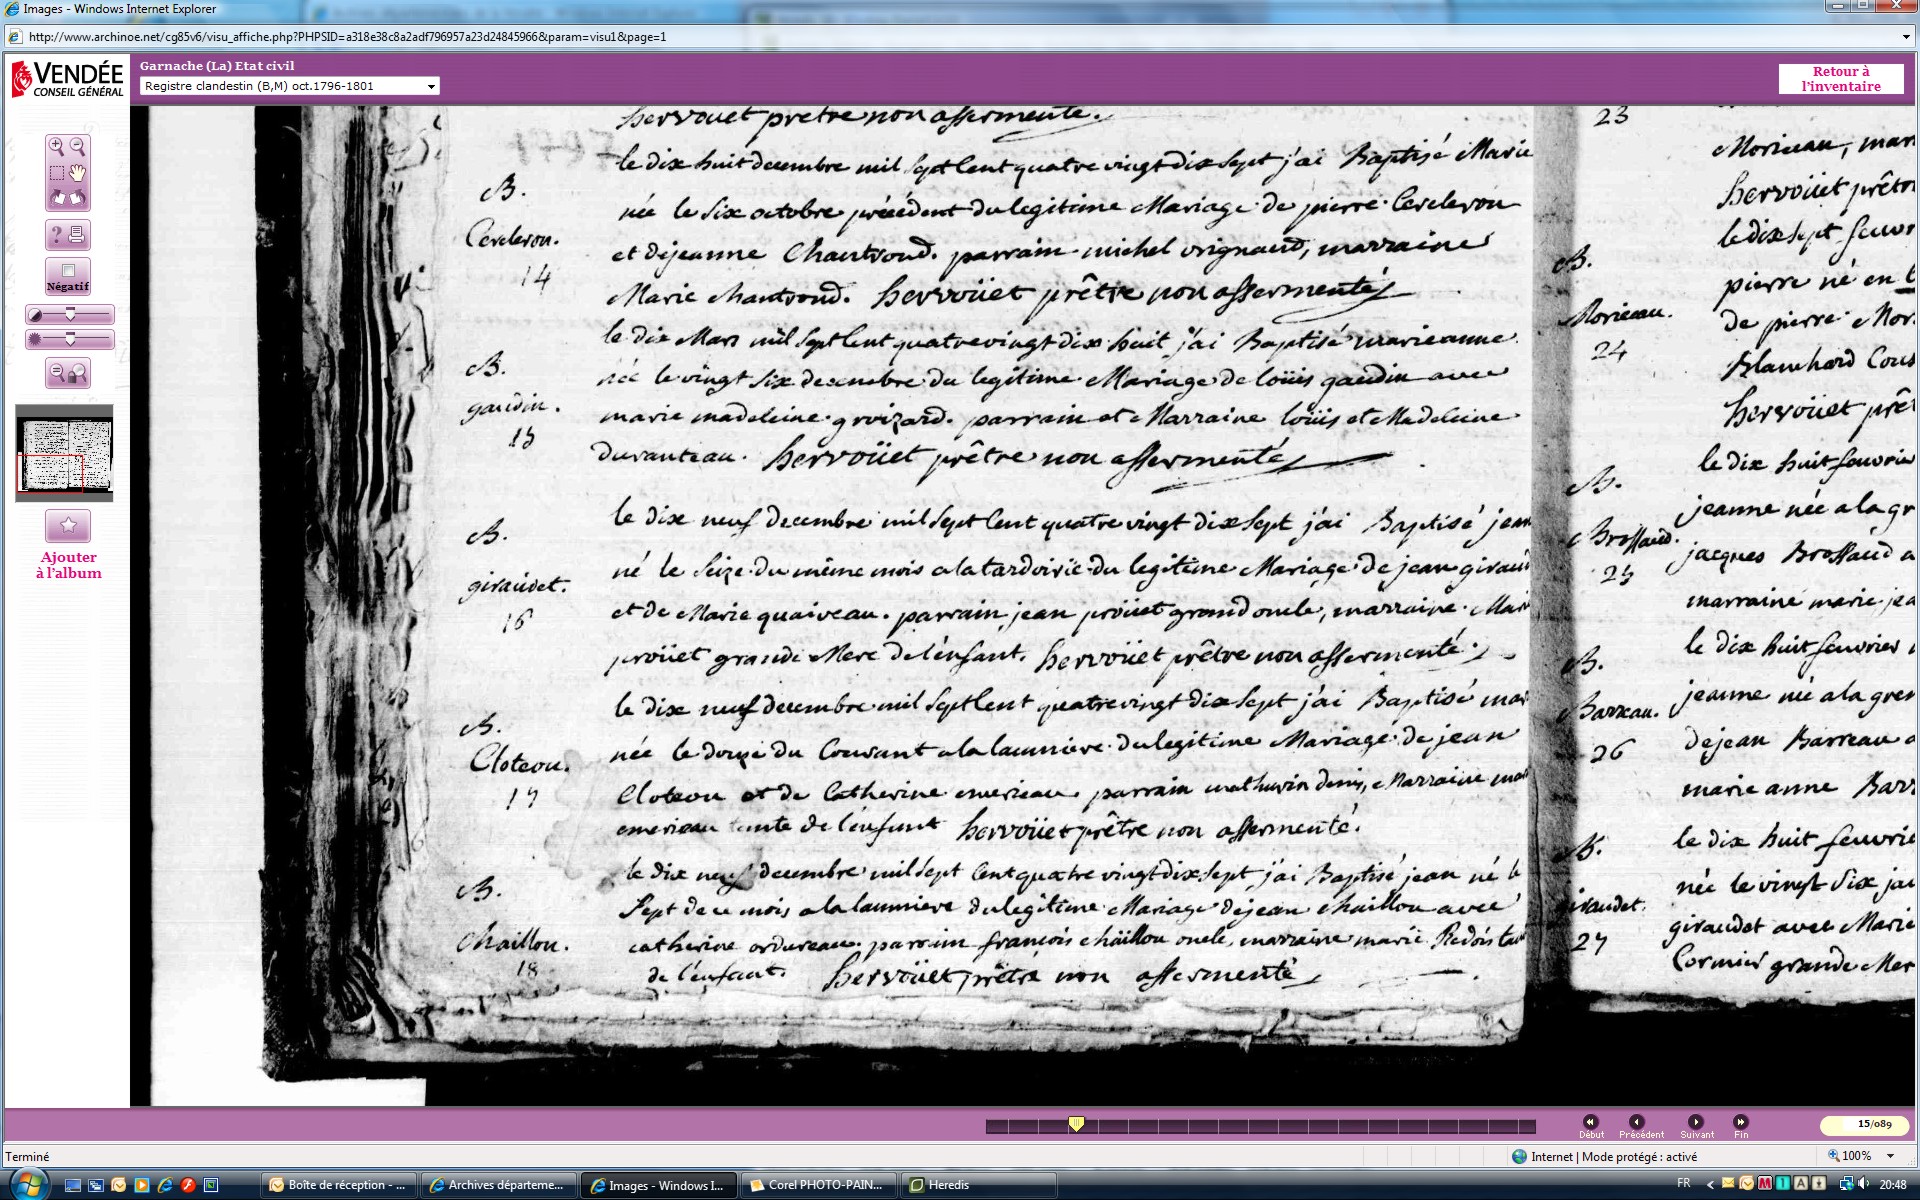 Images - Windows Internet Explorer
http://www.archinoe.net/cg85v6/visu_affiche.php?PHPSID=a318e38c8a2adf796957a23d24845966&param=visu1&page=1
VENDÉE
CONSEIL GÉNÉRAL
Garnache (La) Etat civil
Registre clandestin (B,M) oct.1796-1801
Retour à
l'inventaire
Négatif
Ajouter
à l'album
hervouet pretre non assermenté.
le dix huit decembre mil sept Cent quatre vingt dix sept j'ai Baptisé Marie
B.
née le six octobre précédent du legitime Mariage de pierre Cercleron
Cercleron.
et de jeanne Chantrond. parrain michel vrignaud, marraine
14
Marie chantrond. hervoüet prêtre non assermenté
le dix Mars mil sept Cent quatre vingt dix huit j'ai Baptisé marie anne
B.
née le vingt six decembre du legitime Mariage de loüis gaudin avec
gaudin.
15
marie madeleine groizard. parrain et Marraine loüis et Madeleine
duranteau. hervoüet prêtre non assermenté
le dix neuf decembre mil sept Cent quatre vingt dix sept j'ai Baptisé jean
B.
né le seize du même mois a la tardivie du legitime Mariage de jean
giraudet.
16
et de Marie quaiveau. parrain jean proüet grand oncle, marraine
proüet grande Mere de l'énfant. hervoüet prêtre non assermenté.
le dix neuf decembre mil sept Cent quatre vingt dix sept j'ai Baptisé
B.
née le douze du Courant a la launiere du legitime Mariage de jean
Cloteau.
17
Cloteau et de Catherine emerieau. parrain mathurin denis, Marraine
emerieau tante de l'énfant hervoüet prêtre non assermenté.
le dix neuf decembre mil sept Cent quatre vingt dix sept j'ai Baptisé jean né le
B.
sept de ce mois a la launiere du legitime Mariage de jean chaillou avec
Chaillou.
18
catherine ordureau. parrain françois chaillou oncle, marraine marie
de l'énfant. hervoüet prêtre non assermenté
23
Morieau,
hervoüet
le dix sept
B.
pierre né en
Morieau.
24
de pierre
Blanchard
hervoüet
le dix huit
B.
jeanne née a la
Brossaud.
25
jacques Brossaud
marraine marie
le dix huit
B.
jeanne née a la
Barreau.
26
de jean Barreau
marie anne
le dix huit
B.
née le vingt six
giraudet.
27
giraudet avec Marie
Cormier grande
Début
Précédent
Suivant
Fin
15/089
Terminé
Internet | Mode protégé : activé
100%
Boîte de réception - ...
Archives départeme...
Images - Windows I...
Corel PHOTO-PAIN...
Heredis
FR
20:48